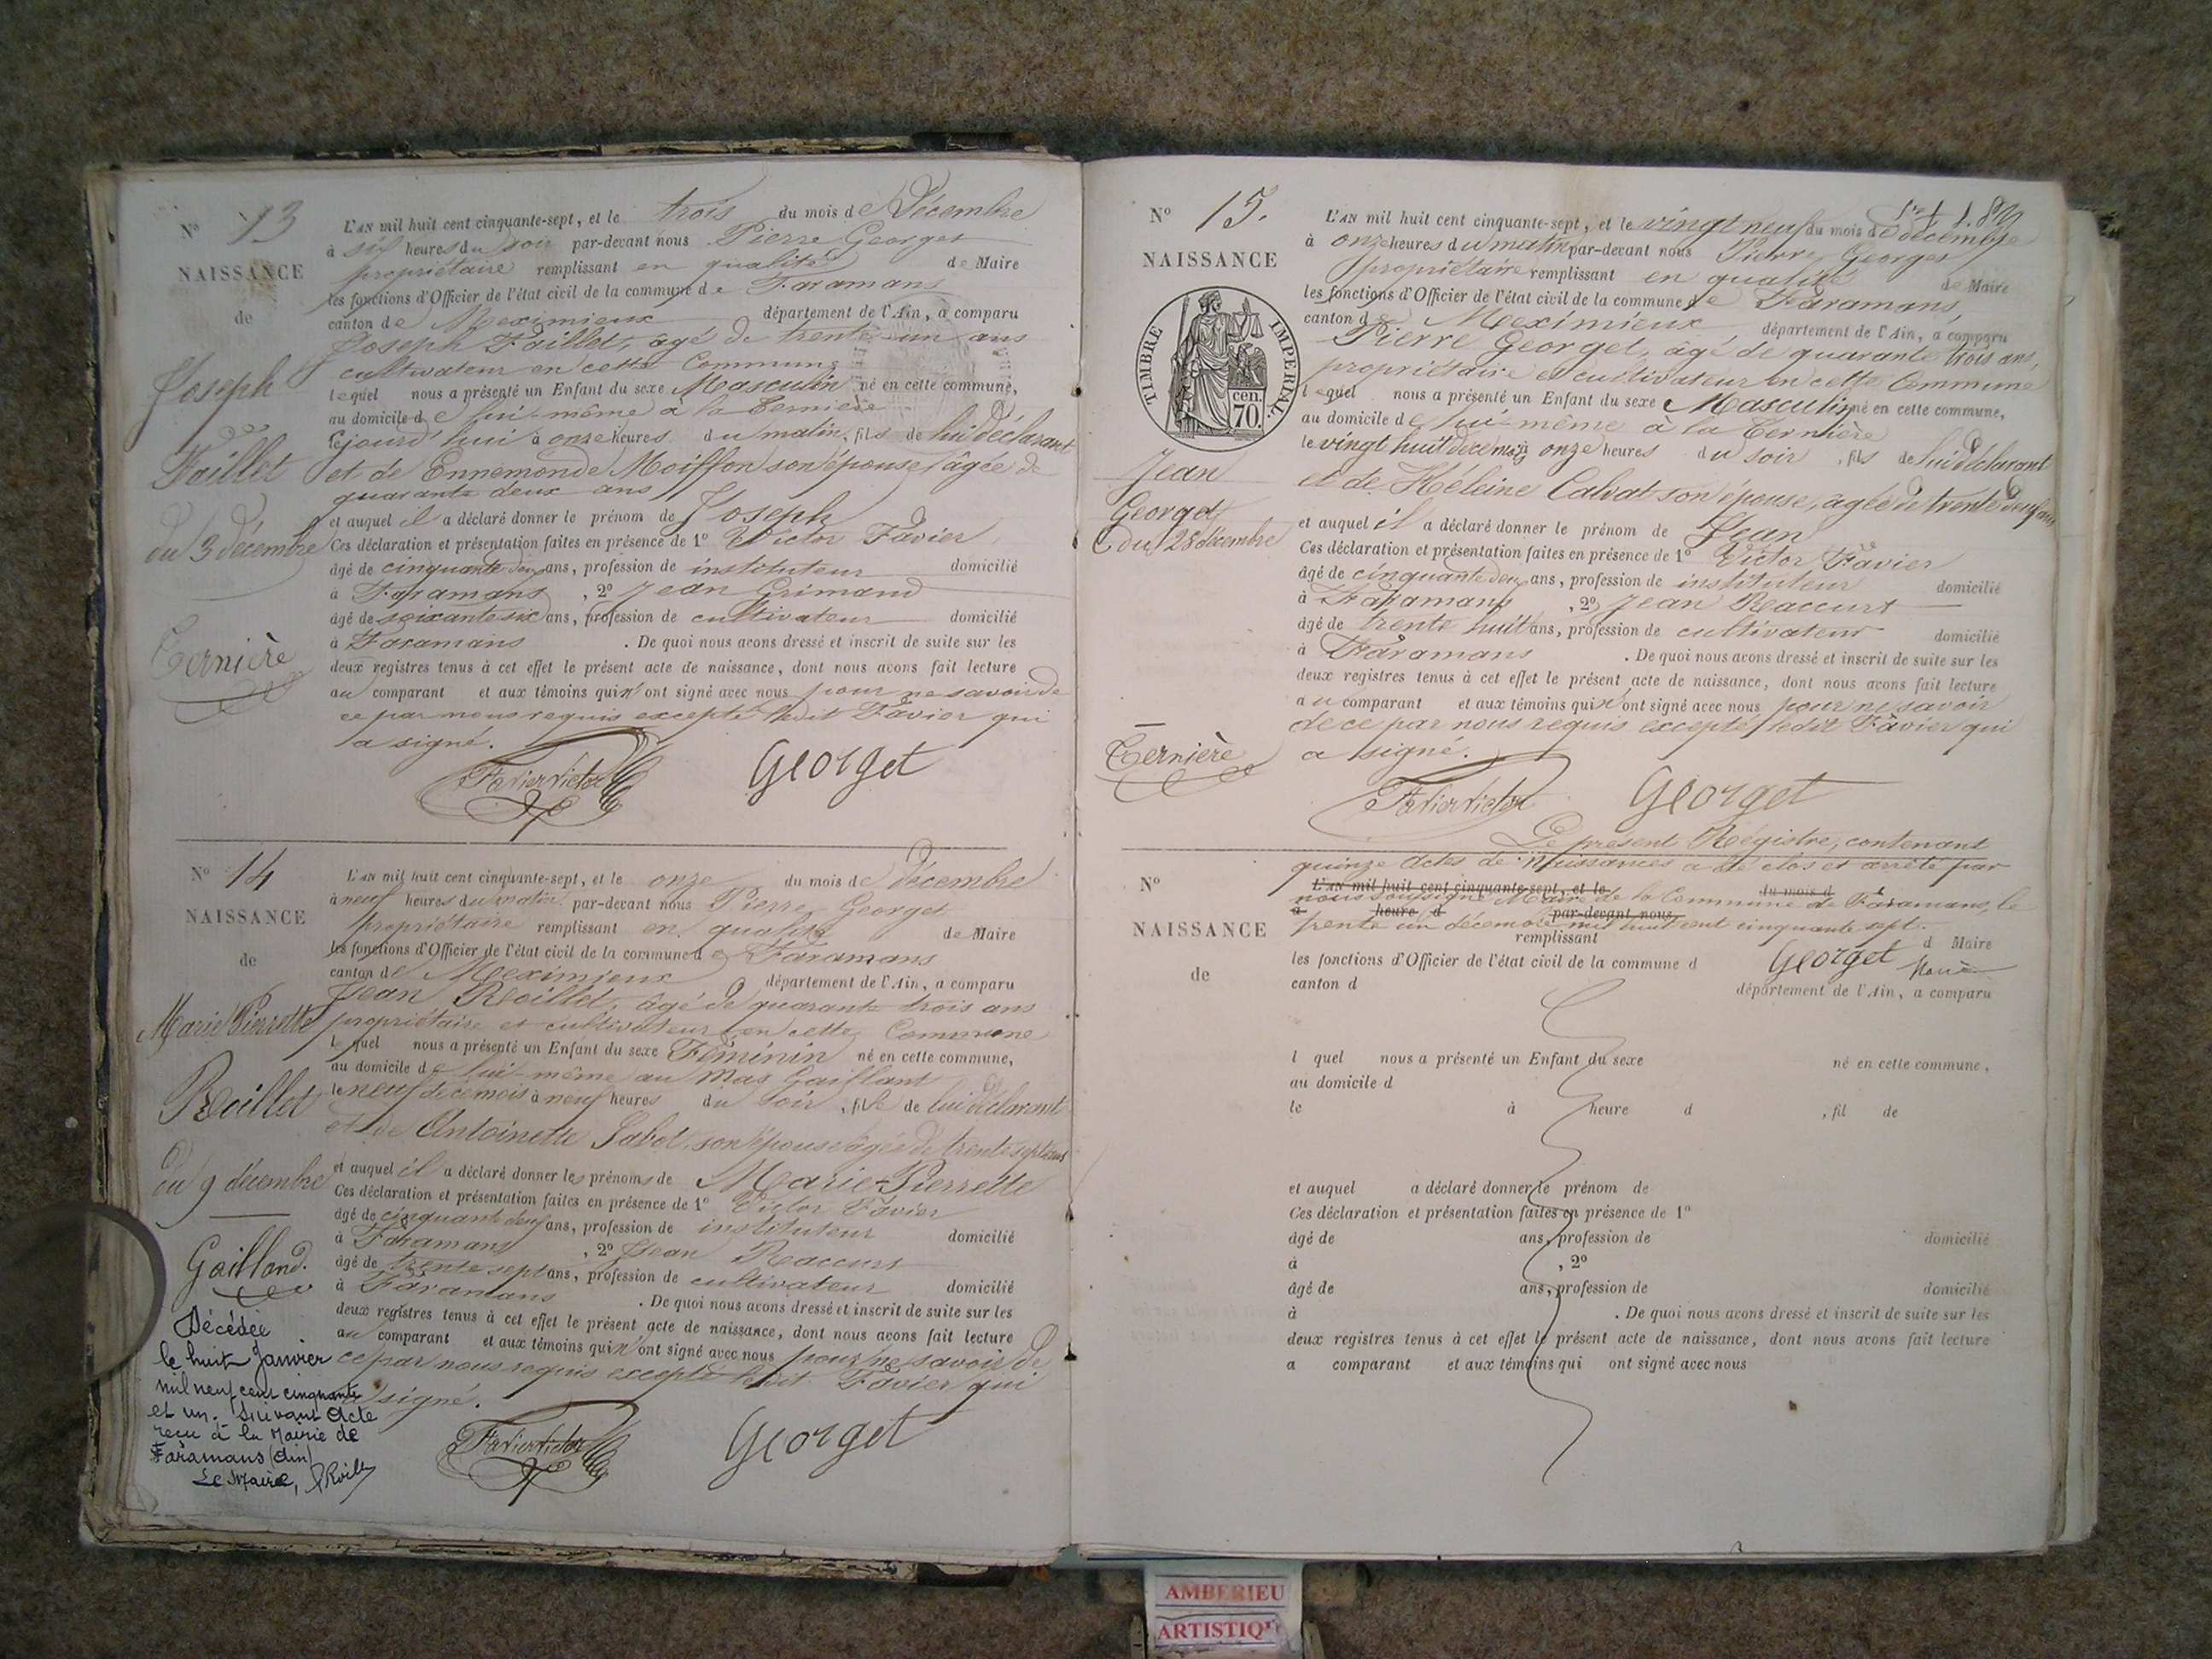 N° 13
NAISSANCE
de
Joseph
Faillet
du 3 décembre
Cernière
L'AN mil huit cent cinquante-sept, et le trois du mois de Décembre
à six heures du soir par-devant nous Pierre Georget
propriétaire remplissant en qualité de Maire
les fonctions d'Officier de l'état civil de la commune de Faramans
canton de Meximieux département de l'Ain, a comparu
Joseph Faillet, agé de trente-un ans
cultivateur en cette Commune
lequel nous a présenté un Enfant du sexe Masculin né en cette commune,
au domicile de lui-même à la Cernière
cejourd'hui à onze heures du matin, fils de lui déclarant
et de Ennemonde Moiffon son épouse, âgée de
quarante deux ans
et auquel il a déclaré donner le prénom de Joseph
Ces déclaration et présentation faites en présence de 1° Victor Favier
âgé de cinquante deux ans, profession de instituteur domicilié
à Faramans, 2° Jean Grimand
âgé de soixante six ans, profession de cultivateur domicilié
à Faramans. De quoi nous avons dressé et inscrit de suite sur les
deux registres tenus à cet effet le présent acte de naissance, dont nous avons fait lecture
au comparant et aux témoins qui n'ont signé avec nous pour ne savoir de
ce par nous requis excepté ledit Favier qui
a signé.
Favier Victor Georget
N° 14
NAISSANCE
de
Marie Pierrette
Roillet
du 9 décembre
Gailland.
Décédée
le huit Janvier
mil neuf cent cinquante
et un. Suivant Acte
reçu à la Mairie de
Faramans (Ain)
Le Maire,
L'AN mil huit cent cinquante-sept, et le onze du mois de décembre
à neuf heures du matin par-devant nous Pierre Georget
propriétaire remplissant en qualité de Maire
les fonctions d'Officier de l'état civil de la commune de Faramans
canton de Meximieux département de l'Ain, a comparu
Jean Roillet, âgé de quarante trois ans
propriétaire et cultivateur en cette Commune
lequel nous a présenté un Enfant du sexe Féminin né en cette commune,
au domicile de lui-même au Mas Gaillant
le neuf de ce mois à neuf heures du soir, fille de lui déclarant
et de Antoinette Sabot, son épouse âgée de trente sept ans
et auquel il a déclaré donner les prénoms de Marie-Pierrette
Ces déclaration et présentation faites en présence de 1° Victor Favier
âgé de cinquante deux ans, profession de instituteur domicilié
à Faramans, 2° Jean Raccurt
âgé de trente sept ans, profession de cultivateur domicilié
à Faramans. De quoi nous avons dressé et inscrit de suite sur les
deux registres tenus à cet effet le présent acte de naissance, dont nous avons fait lecture
au comparant et aux témoins qui n'ont signé avec nous pour ne savoir de
ce par nous requis excepté ledit Favier qui
a signé.
Favier Victor Georget
N° 15.
NAISSANCE
TIMBRE IMPERIAL.
70. cen.
Jean
Georget
du 28 décembre
Cernière
L'AN mil huit cent cinquante-sept, et le vingt neuf du mois de décembre
à onze heures du matin par-devant nous Pierre Georget
propriétaire remplissant en qualité de Maire
les fonctions d'Officier de l'état civil de la commune de Faramans,
canton de Meximieux département de l'Ain, a comparu
Pierre Georget, âgé de quarante trois ans,
propriétaire et cultivateur en cette Commune
lequel nous a présenté un Enfant du sexe Masculin né en cette commune,
au domicile de lui-même à la Cernière
le vingt huit décembre à onze heures du soir, fils de lui déclarant
et de Héleine Calvat son épouse, agée de trente deux ans
et auquel il a déclaré donner le prénom de Jean
Ces déclaration et présentation faites en présence de 1° Victor Favier
âgé de cinquante deux ans, profession de instituteur domicilié
à Faramans, 2° Jean Raccurt
âgé de trente huit ans, profession de cultivateur domicilié
à Faramans. De quoi nous avons dressé et inscrit de suite sur les
deux registres tenus à cet effet le présent acte de naissance, dont nous avons fait lecture
au comparant et aux témoins qui n'ont signé avec nous pour ne savoir
de ce par nous requis excepté ledit Favier qui
a signé.
Favier Victor Georget
Le présent Régistre, contenant
quinze actes de naissances a été clos et arrêté par
N°
NAISSANCE
de
L'AN mil huit cent cinquante-sept, et le du mois d
nous soussigné Maire de la Commune de Faramans, le
à heure d par-devant nous
trente un décembre mil huit cent cinquante sept.
remplissant d Maire
Georget Maire
les fonctions d'Officier de l'état civil de la commune d
canton d département de l'Ain, a comparu
l quel nous a présenté un Enfant du sexe né en cette commune,
au domicile d
le à heure d , fil de
et auquel a déclaré donner le prénom de
Ces déclaration et présentation faites en présence de 1°
âgé de ans, profession de domicilié
à , 2°
âgé de ans, profession de domicilié
à . De quoi nous avons dressé et inscrit de suite sur les
deux registres tenus à cet effet le présent acte de naissance, dont nous avons fait lecture
a comparant et aux témoins qui ont signé avec nous
AMBERIEU
ARTISTIQU